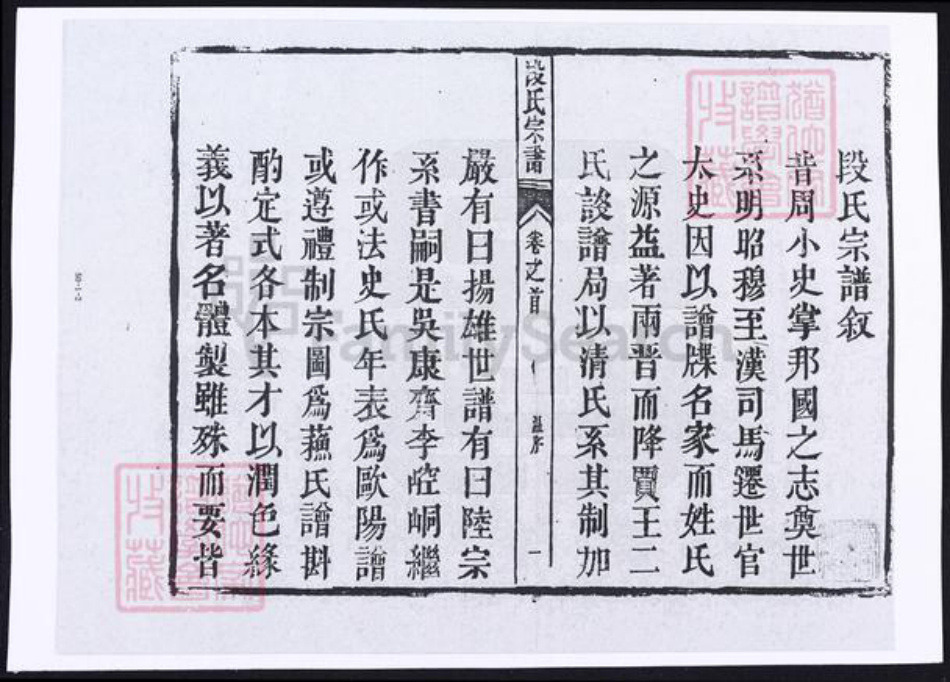 段氏宗譜叙
昔周小史掌邦國之志奠世
系明昭穆至漢司馬遷世官
太史因以譜牒名家而姓氏
之源益著兩晉而降賈王二
氏談譜局以清氏系其制加
段氏宗譜 卷之首 譜序 一
嚴有曰揚雄世譜有曰陸宗
系書嗣是吳康齋李崆峒繼
作或法史氏年表為歐陽譜
或遵禮制宗圖為蘓氏譜斟
酌定式各本其才以潤色緣
義以著名體製雖殊而要皆
FamilySearch